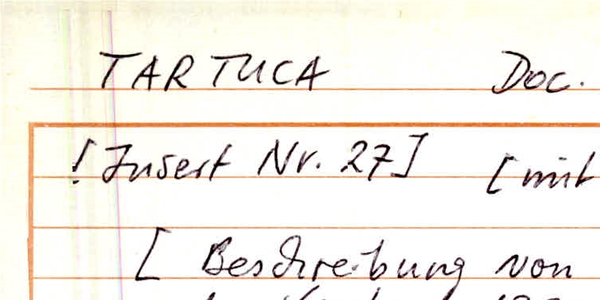 TARTUCA Doc.
! Insert Nr. 27] [mit
[ Beschreibung von